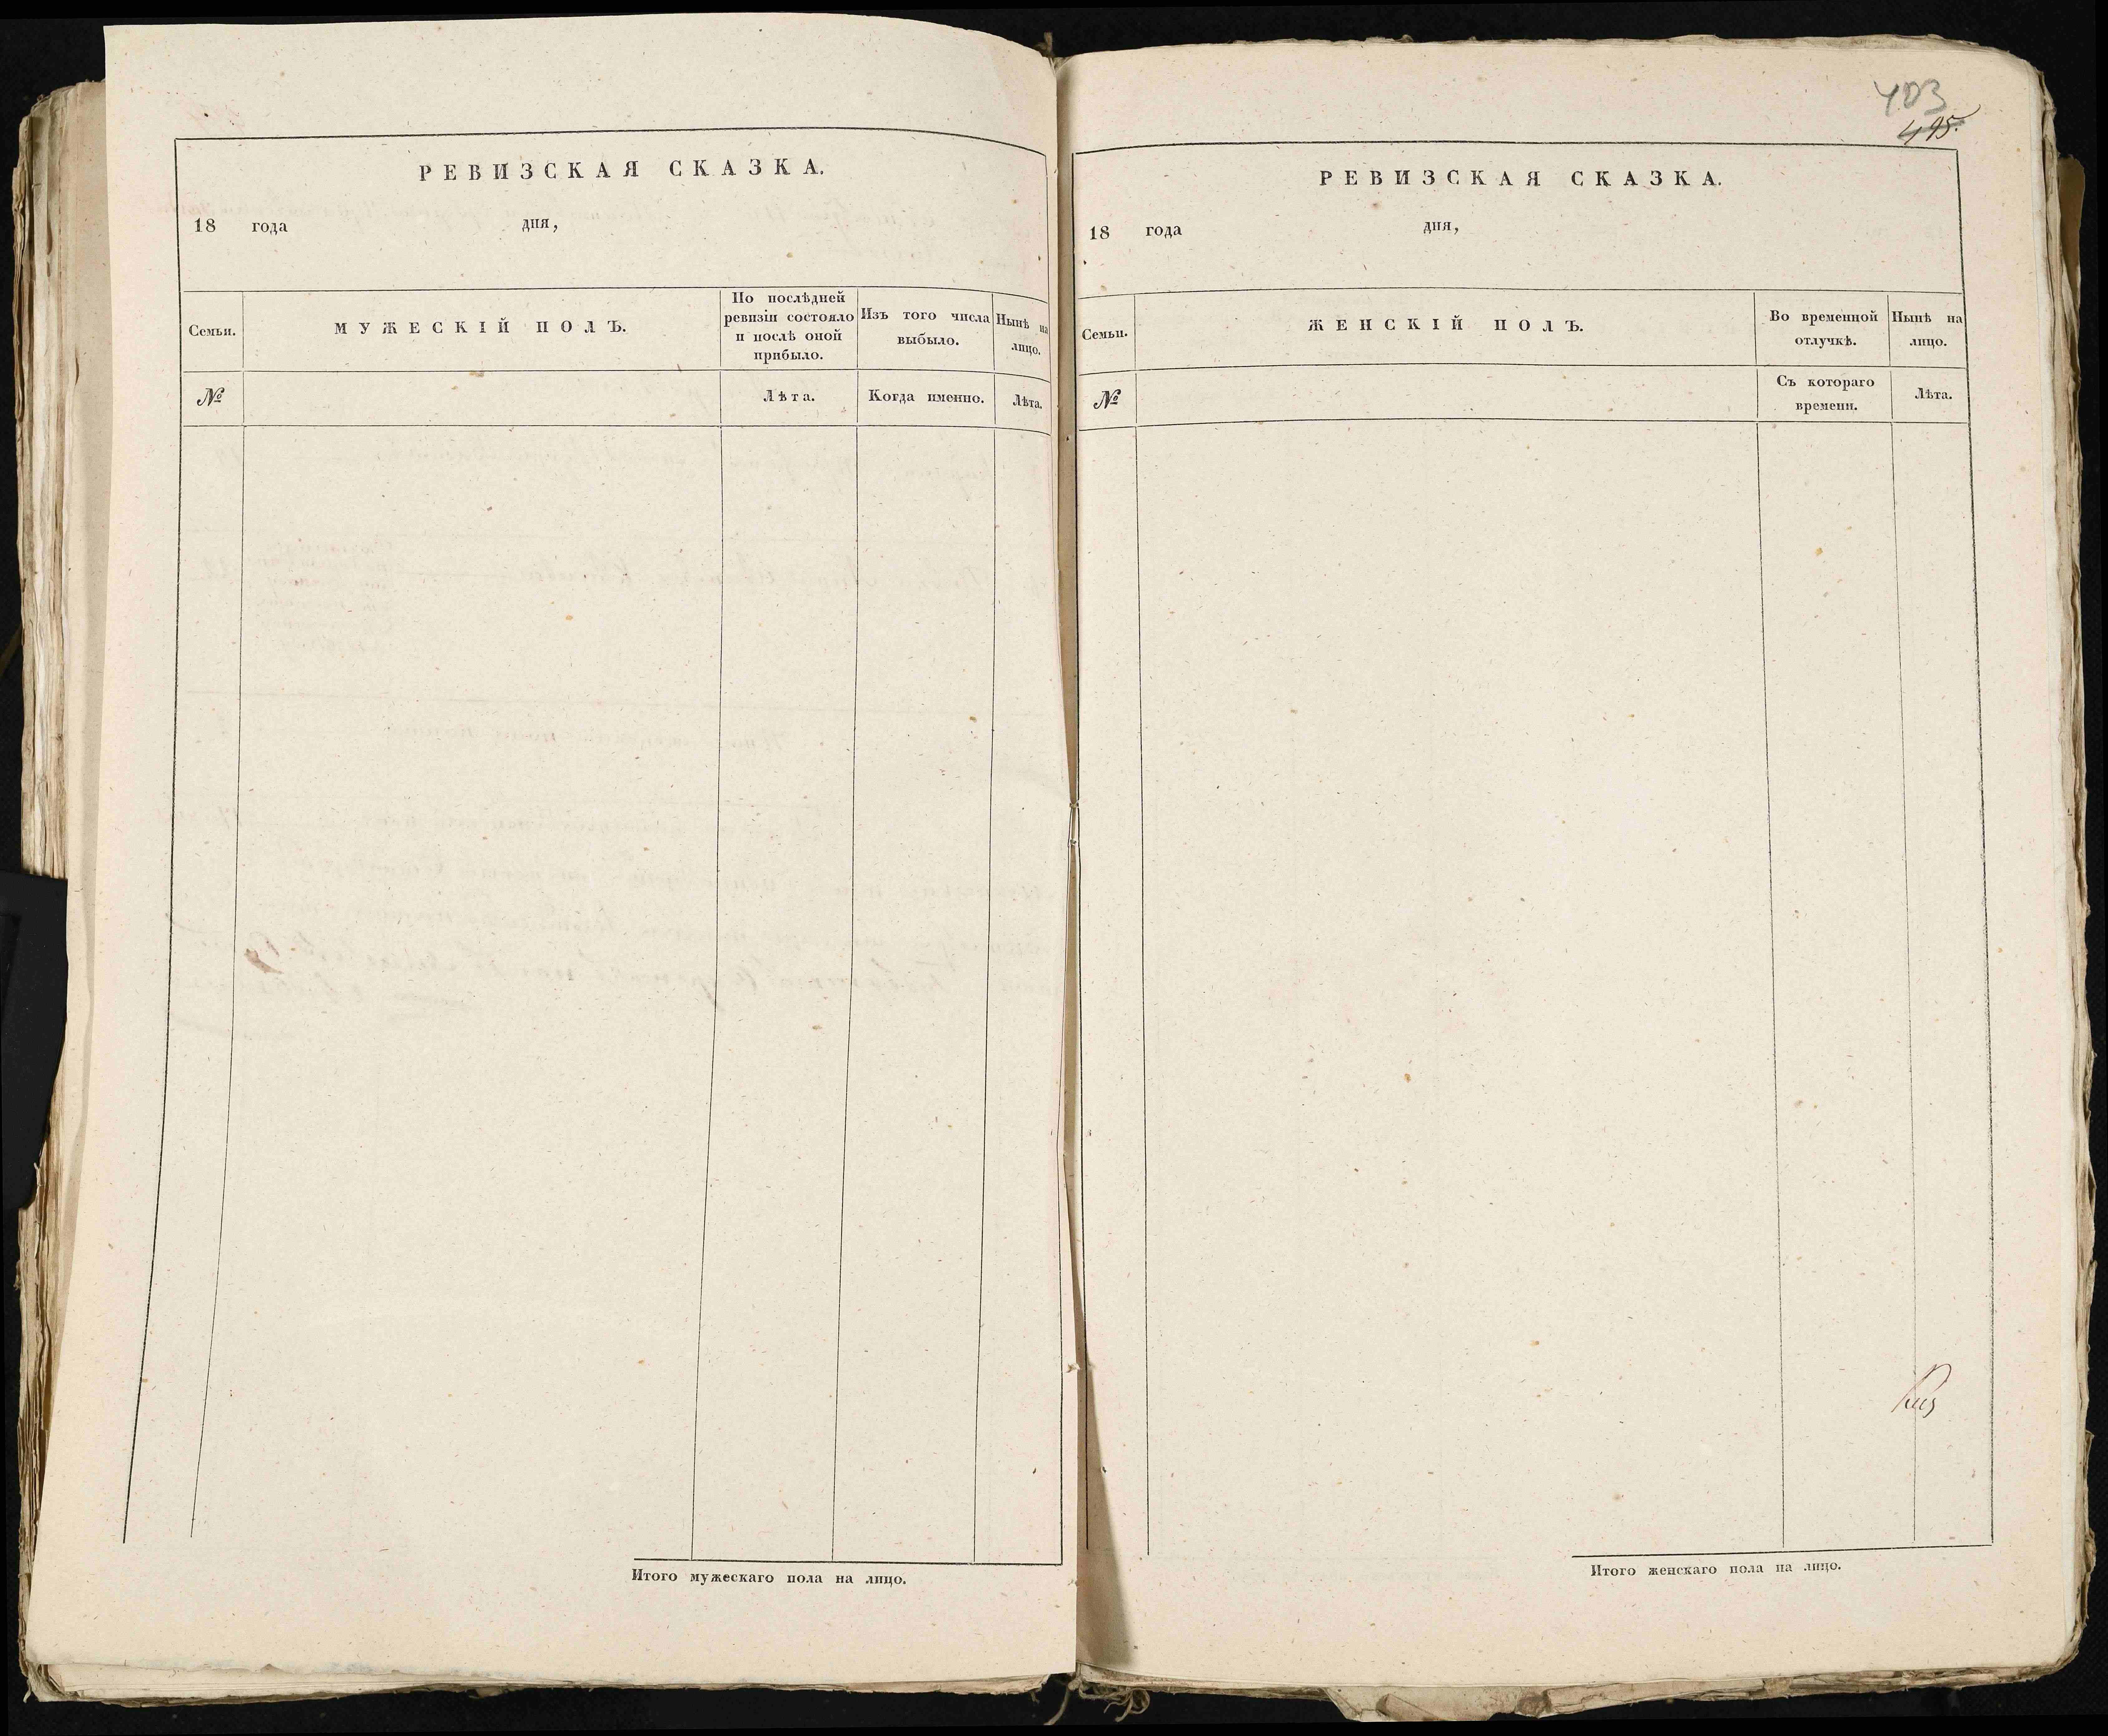 РЕВИЗСКАЯ СКАЗКА.
18 года дня,
Семьи.
МУЖЕСКІЙ ПОЛЪ.
По послѣдней
ревизіи состояло
и послѣ оной
прибыло.
Изъ того числа
выбыло.
Нынѣ на
лицо.
№
Лѣта.
Когда именно.
Лѣта.
Итого мужескаго пола на лицо.
403
495.
РЕВИЗСКАЯ СКАЗКА.
18 года дня,
Семьи.
ЖЕНСКІЙ ПОЛЪ.
Во временной
отлучкѣ.
Нынѣ на
лицо.
№
Съ котораго
времени.
Лѣта.
Итого женскаго пола на лицо.